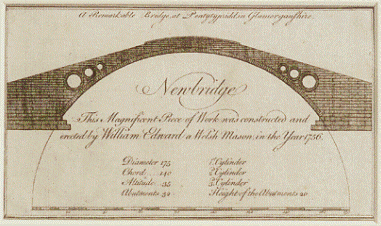 A Remarkable Bridge, at Pontytypridd in Glamorganshire.
Newbridge
This Magnificent Piece of Work was constructed and
erected by William Edward a Welsh Mason, in the Year 1756.
Diameter 175 1. Cylinder
Chord 140 2. Cylinder
Altitude 35 3. Cylinder
Abutments 32 Height of the Abutments 20